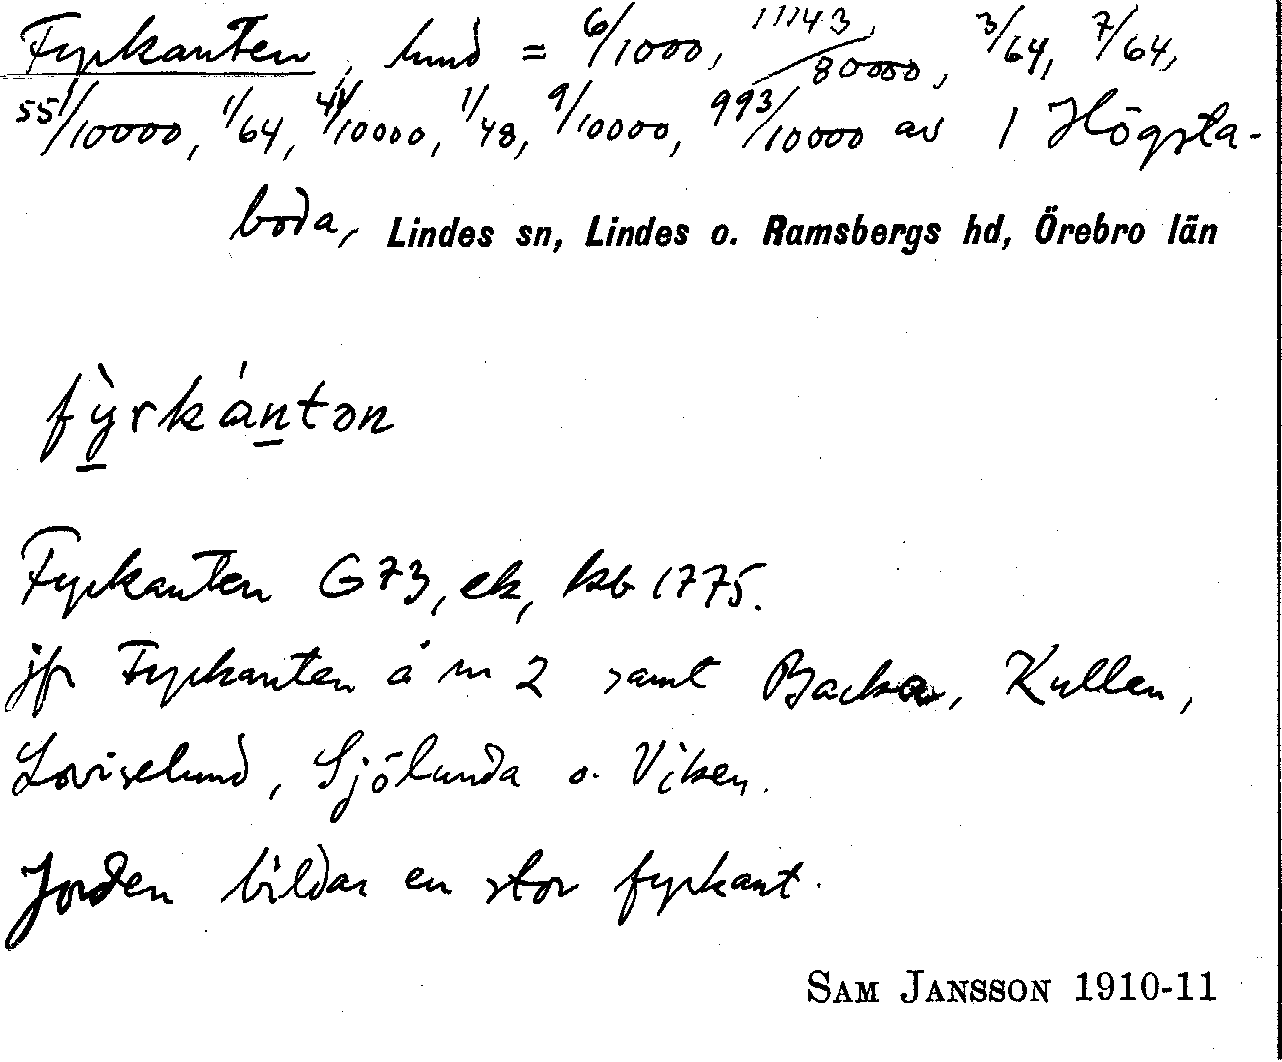 Fyrkanten, hmd = 6/1000, 11143/80000, 3/64, 7/64,
551/10000, 1/64, 41/10000, 1/48, 9/10000, 993/10000 av 1 Högsta-
boda, Lindes sn, Lindes o. Ramsbergs hd, Örebro län
fỳrkántən
Fyrkanten G73, ek, kb 1775.
jfr Fyrkanten å nr 2 samt Backa, Kullen,
Loviselund, Sjölunda o. Viken.
Jorden bildar en stor fyrkant.
SAM JANSSON 1910-11